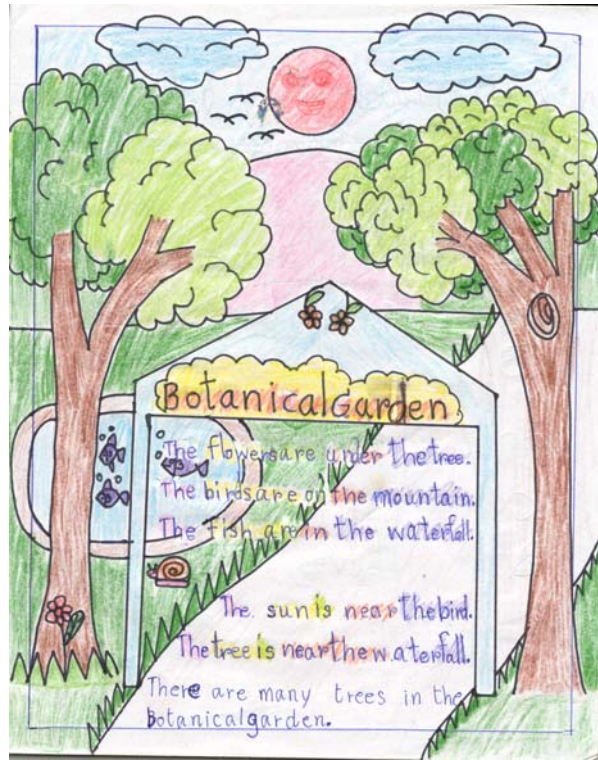 Botanical Garden
The flowers are under the tree.
The birds are on the mountain.
The fish are in the waterfall.
The sun is near the bird.
The tree is near the waterfall.
There are many trees in the
Botanical garden.